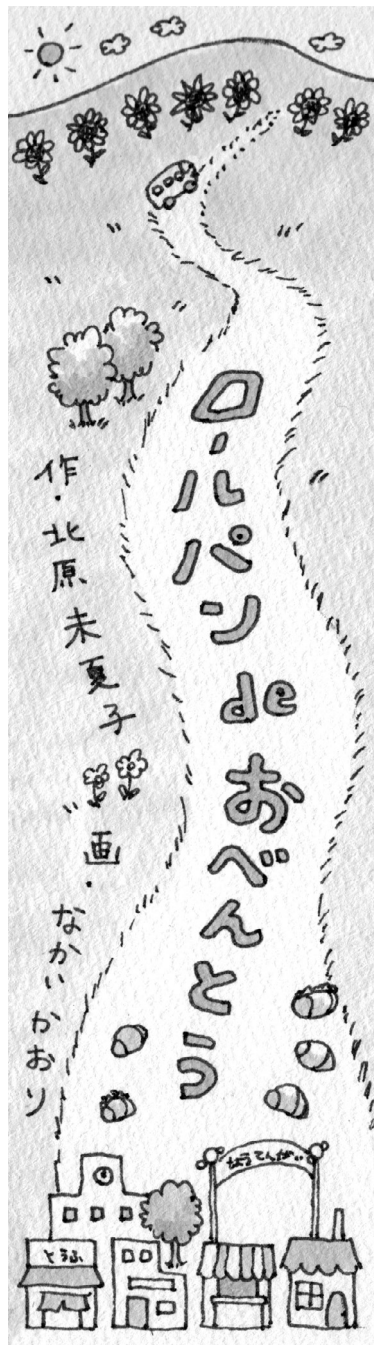 ロールパン de おべんとう
作・北原未夏子 画・なかいかおり
しょうてんがい
とうふ